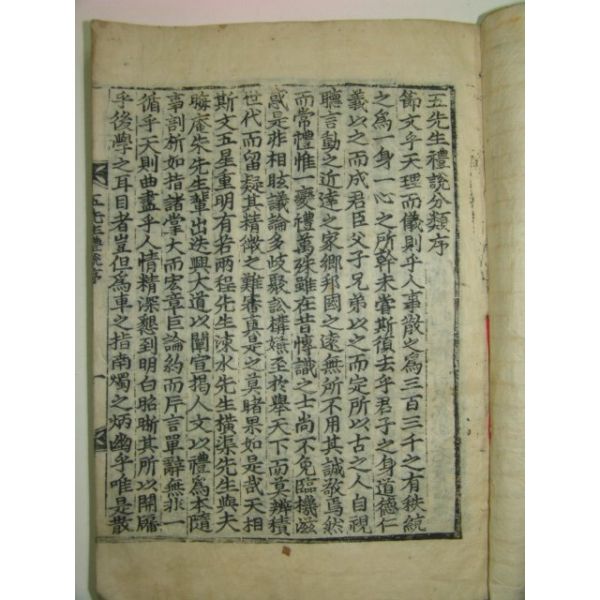 五先生禮說分類序
節文乎天理而儀則乎人事散之爲三百三千之有秩統
之爲一身一心之所幹未嘗斯須去乎君子之身道德仁
義以之而成君臣父子兄弟以之而定所以古之人自視
聽言動之近達之家鄉邦國之遠無所不用其誠敬焉然
而常禮惟一變禮萬殊雖在昔博識之士尚不免臨機滋
惑是非相眩議論多歧聚訟構嫌至於舉天下而莫辨積
世代而留疑其精微之難審眞是之莫睹果如是哉天相
斯文五星重明有若兩程先生涑水先生橫渠先生與夫
晦庵朱先生輩出迭興大道以闡宣揭人文以禮爲本隨
事剖析如指諸掌大而宏章巨論約而片言單辭無非一
循乎天則曲盡乎人情精深懇到明白昭晣其所以開牖
乎後學之耳目者豈但爲車之指南燭之炳幽乎唯是散
五先生禮說序
一